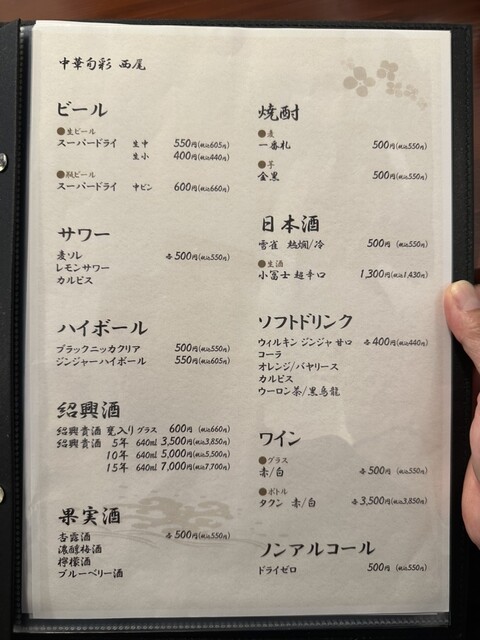 中華旬彩 西尾
ビール
●生ビール
スーパードライ 生中 550円(税込605円)
生小 400円(税込440円)
●瓶ビール
スーパードライ 中ビン 600円(税込660円)
サワー
麦ソレ 各500円(税込550円)
レモンサワー
カルピス
ハイボール
ブラックニッカクリア 500円(税込550円)
ジンジャーハイボール 550円(税込605円)
紹興酒
紹興貴酒 甕入り グラス 600円(税込660円)
紹興貴酒 5年 640ml 3,500円(税込3,850円)
10年 640ml 5,000円(税込5,500円)
15年 640ml 7,000円(税込7,700円)
果実酒
杏露酒 各500円(税込550円)
濃醇梅酒
檸檬酒
ブルーベリー酒
焼酎
●麦
一番札 500円(税込550円)
●芋
金黒 500円(税込550円)
日本酒
雪雀 熱燗/冷 500円(税込550円)
●生酒
小冨士 超辛口 1,300円(税込1,430円)
ソフトドリンク
ウィルキン ジンジャ 甘口 各400円(税込440円)
コーラ
オレンジ/バヤリース
カルピス
ウーロン茶/黒烏龍
ワイン
●グラス
赤/白 各500円(税込550円)
●ボトル
タクン 赤/白 各3,500円(税込3,850円)
ノンアルコール
ドライゼロ 500円(税込550円)